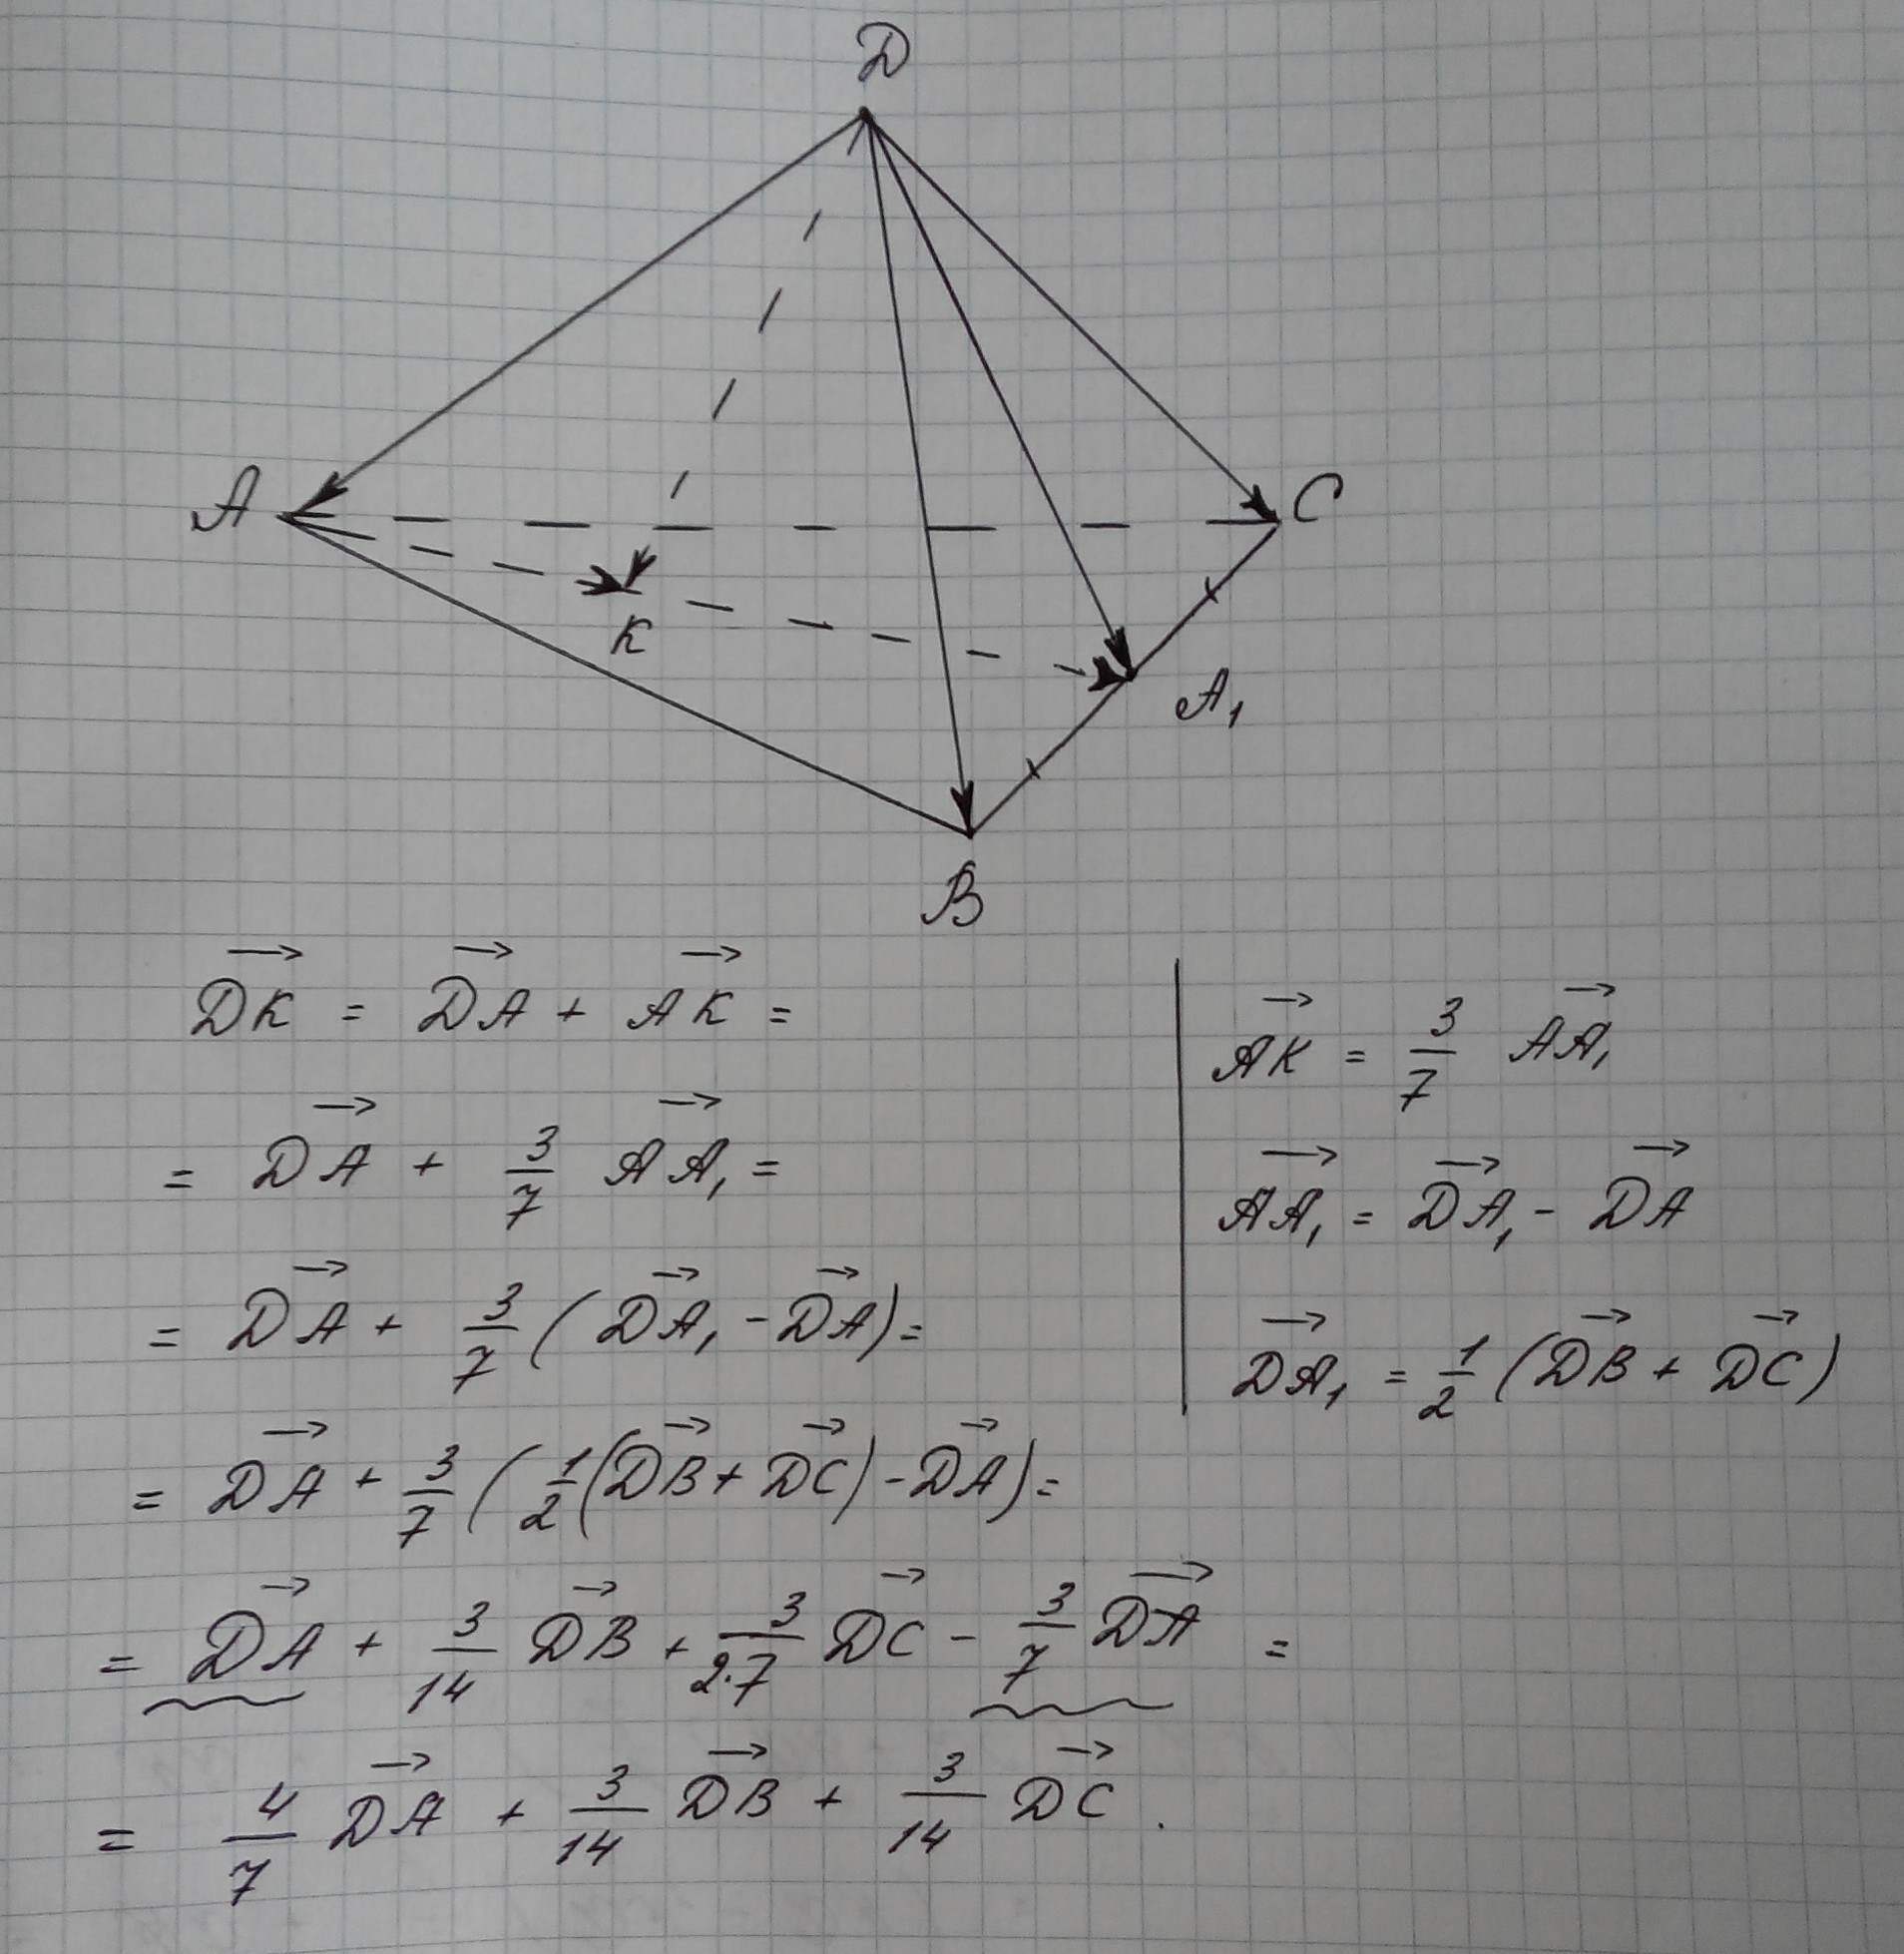 D
A
C
K
A₁
B
DK⃗ = DA⃗ + AK⃗ =
= DA⃗ + 3/7 AA₁⃗ =
= DA⃗ + 3/7 (DA₁⃗ - DA⃗) =
= DA⃗ + 3/7 (1/2 (DB⃗ + DC⃗) - DA⃗) =
= DA⃗ + 3/14 DB⃗ + 3/2·7 DC⃗ - 3/7 DA⃗ =
= 4/7 DA⃗ + 3/14 DB⃗ + 3/14 DC⃗.
AK⃗ = 3/7 AA₁⃗
AA₁⃗ = DA₁⃗ - DA⃗
DA₁⃗ = 1/2 (DB⃗ + DC⃗)